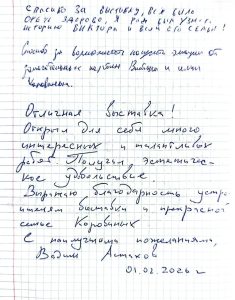 Спасибо за выставку, всё было
очень здорово, я рад был узнать
историю Виктора и всей его семьи!
Спасибо за возможность получить эмоции от
замечательных картин Виктора и
Коровиных.
Отличная выставка!
Открыл для себя много
интересных и талантливых
работ. Получил эстетичес-
кое удовольствие.
Выражаю благодарность устро-
ителям выставки и прекрасной
семье Коровиных
С наилучшими пожеланиями,
Вадим Астахов
01.02.2026 г